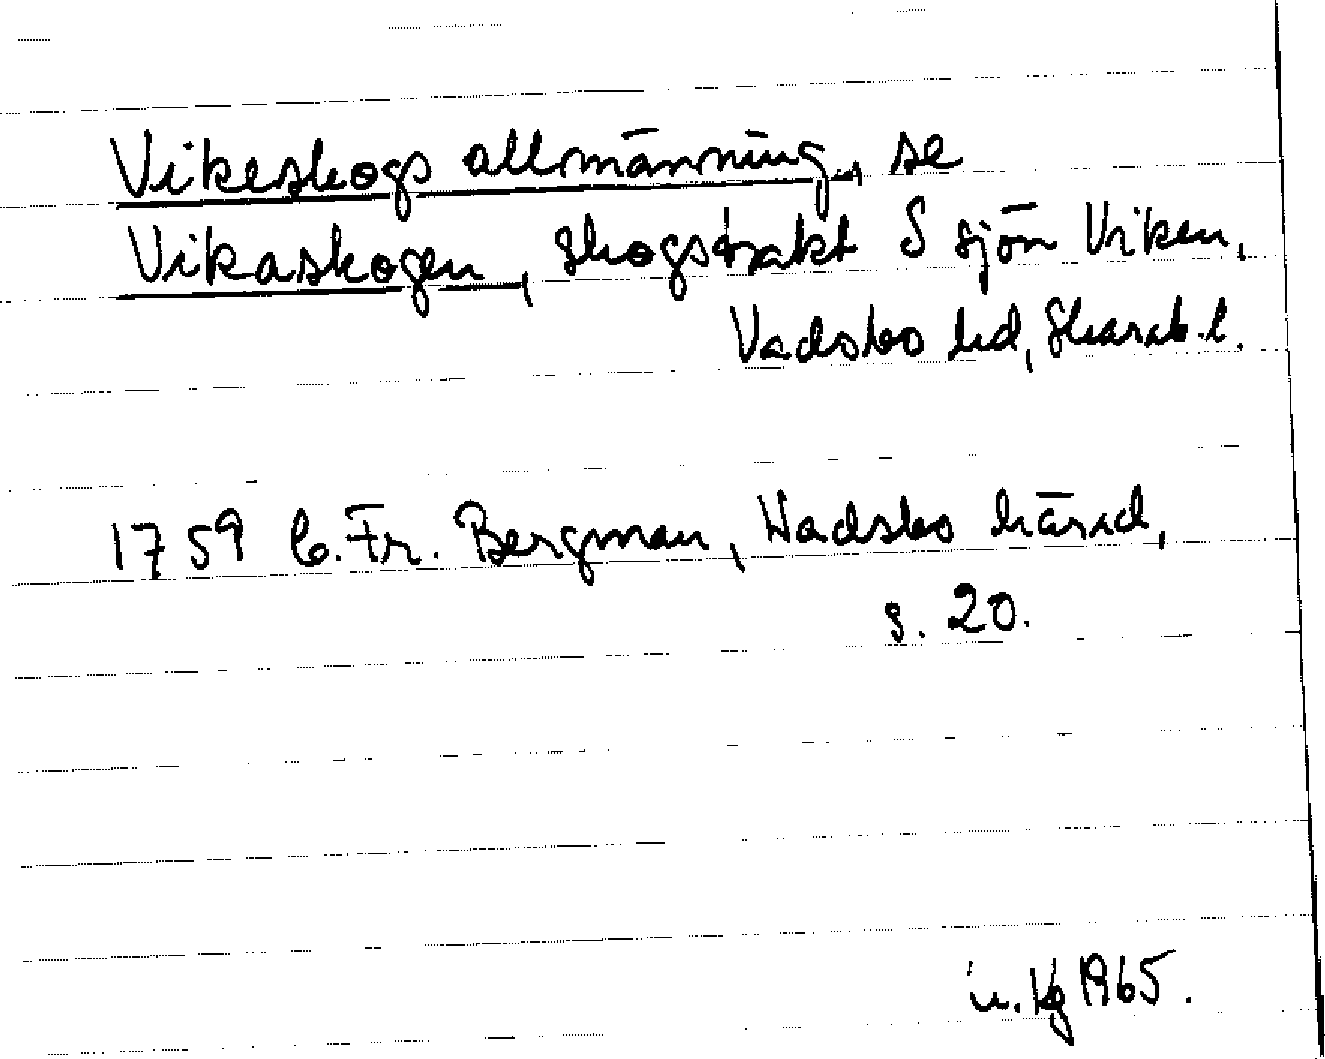 Vikeskogs allmänning, se
Vikaskogen, skogstrakt S sjön Viken,
Vadsbo hd, Skarab.l.
1759 C. Fr. Bergman, Wadsbo härad,
s. 20.
u. Kg 1965.